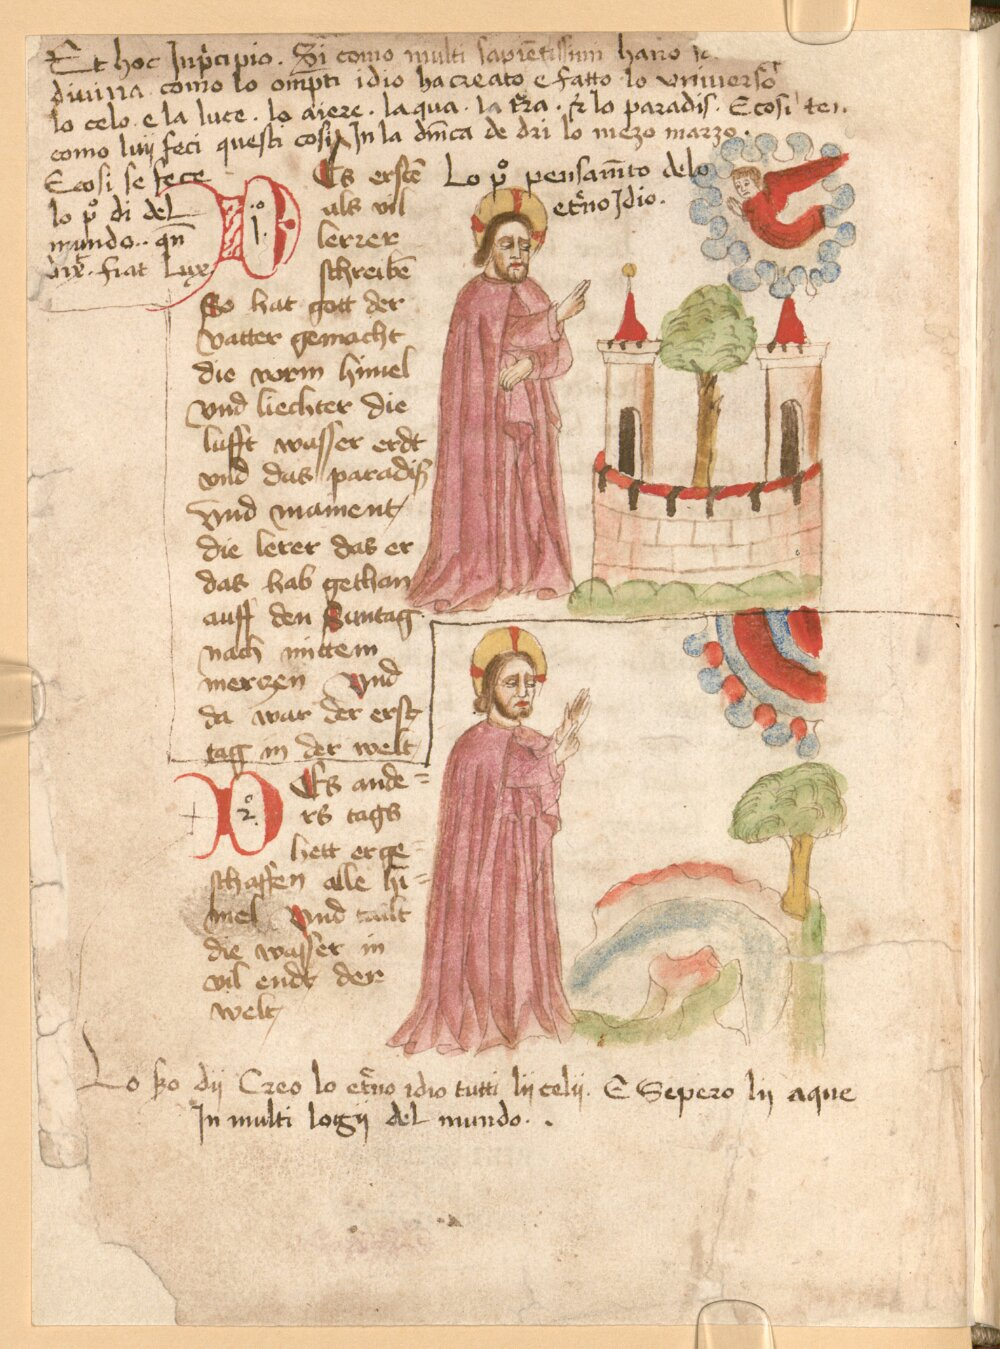 Et hoc Inp̄cipio. Si como multi sapiētissim hano
diuina como lo om̄pti idio ha creato e fatto lo vniuerso
lo celo e la luce. lo aiere. laqua. la t̄ra. & lo paradis. E cosi
como luy feci questi cosi In la dm̄ca de dri lo mezo marzo.
E cosi se fece
lo p̊ di del
mundo.. qn̄
dix̄. fiat Lux
.I.º
Es erstē
als vil
lerrer
schreibē
So hat gott der
vatter gemacht
die vorm himel
vnd liechter die
lufft wasser erdt
vnd das paradiſ
vnd mament
die lerer das er
das hab gethan
auff den Suntag
nach mittem
merczen Vnd
da war der erst
tag in der welt
Lo p̊ pensam̄to delo
et̄no Idio.
2.º
Es ande=
rs tags
hett erge=
schaffen alle hi=
mel Vnd tailt
die wasser in
vil endt der
welt
Lo sc̄o dij Creo lo et̄no idio tutti lij celij. E Sepero lij aque
In multi logij del mundo. .